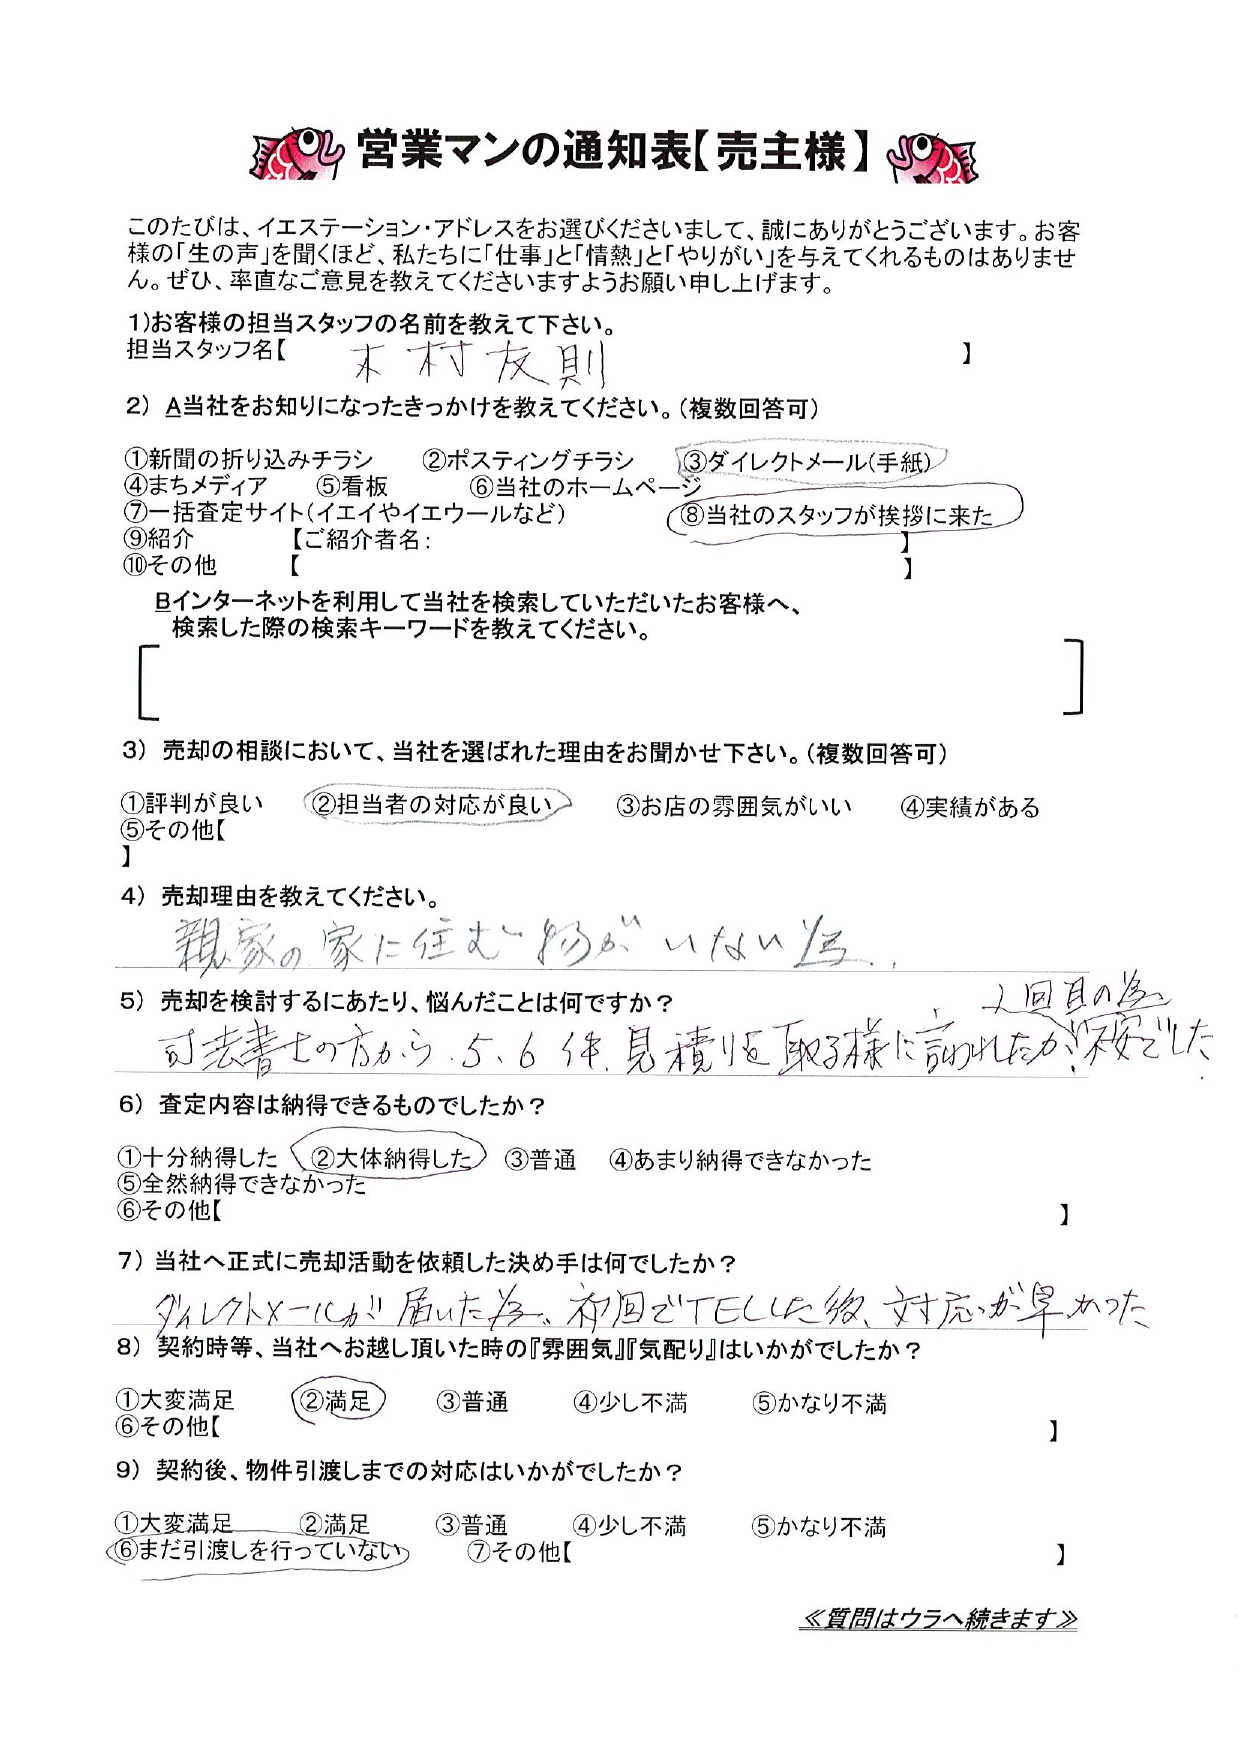 営業マンの通知表【売主様】
このたびは、イエステーション・アドレスをお選びくださいまして、誠にありがとうございます。お客
様の「生の声」を聞くほど、私たちに「仕事」と「情熱」と「やりがい」を与えてくれるものはありませ
ん。ぜひ、率直なご意見を教えてくださいますようお願い申し上げます。
1)お客様の担当スタッフの名前を教えて下さい。
担当スタッフ名【 木村友則 】
2） A当社をお知りになったきっかけを教えてください。（複数回答可）
①新聞の折り込みチラシ ②ポスティングチラシ ③ダイレクトメール(手紙)
④まちメディア ⑤看板 ⑥当社のホームページ
⑦一括査定サイト(イエイやイエウールなど) ⑧当社のスタッフが挨拶に来た
⑨紹介 【ご紹介者名： 】
⑩その他 【 】
Bインターネットを利用して当社を検索していただいたお客様へ、
検索した際の検索キーワードを教えてください。
3） 売却の相談において、当社を選ばれた理由をお聞かせ下さい。（複数回答可）
①評判が良い ②担当者の対応が良い ③お店の雰囲気がいい ④実績がある
⑤その他【
】
4） 売却理由を教えてください。
親家の家に住む物がいない為
5） 売却を検討するにあたり、悩んだことは何ですか？
2回目の為、
司法書士の方から5、6件見積りを取る様に言われたが不安でした
6） 査定内容は納得できるものでしたか？
①十分納得した ②大体納得した ③普通 ④あまり納得できなかった
⑤全然納得できなかった
⑥その他【 】
7） 当社へ正式に売却活動を依頼した決め手は何でしたか？
ダイレクトメールが届いた為、初回でTELした後、対応が早かった
8） 契約時等、当社へお越し頂いた時の『雰囲気』『気配り』はいかがでしたか？
①大変満足 ②満足 ③普通 ④少し不満 ⑤かなり不満
⑥その他【 】
9） 契約後、物件引渡しまでの対応はいかがでしたか？
①大変満足 ②満足 ③普通 ④少し不満 ⑤かなり不満
⑥まだ引渡しを行っていない ⑦その他【 】
≪質問はウラへ続きます≫